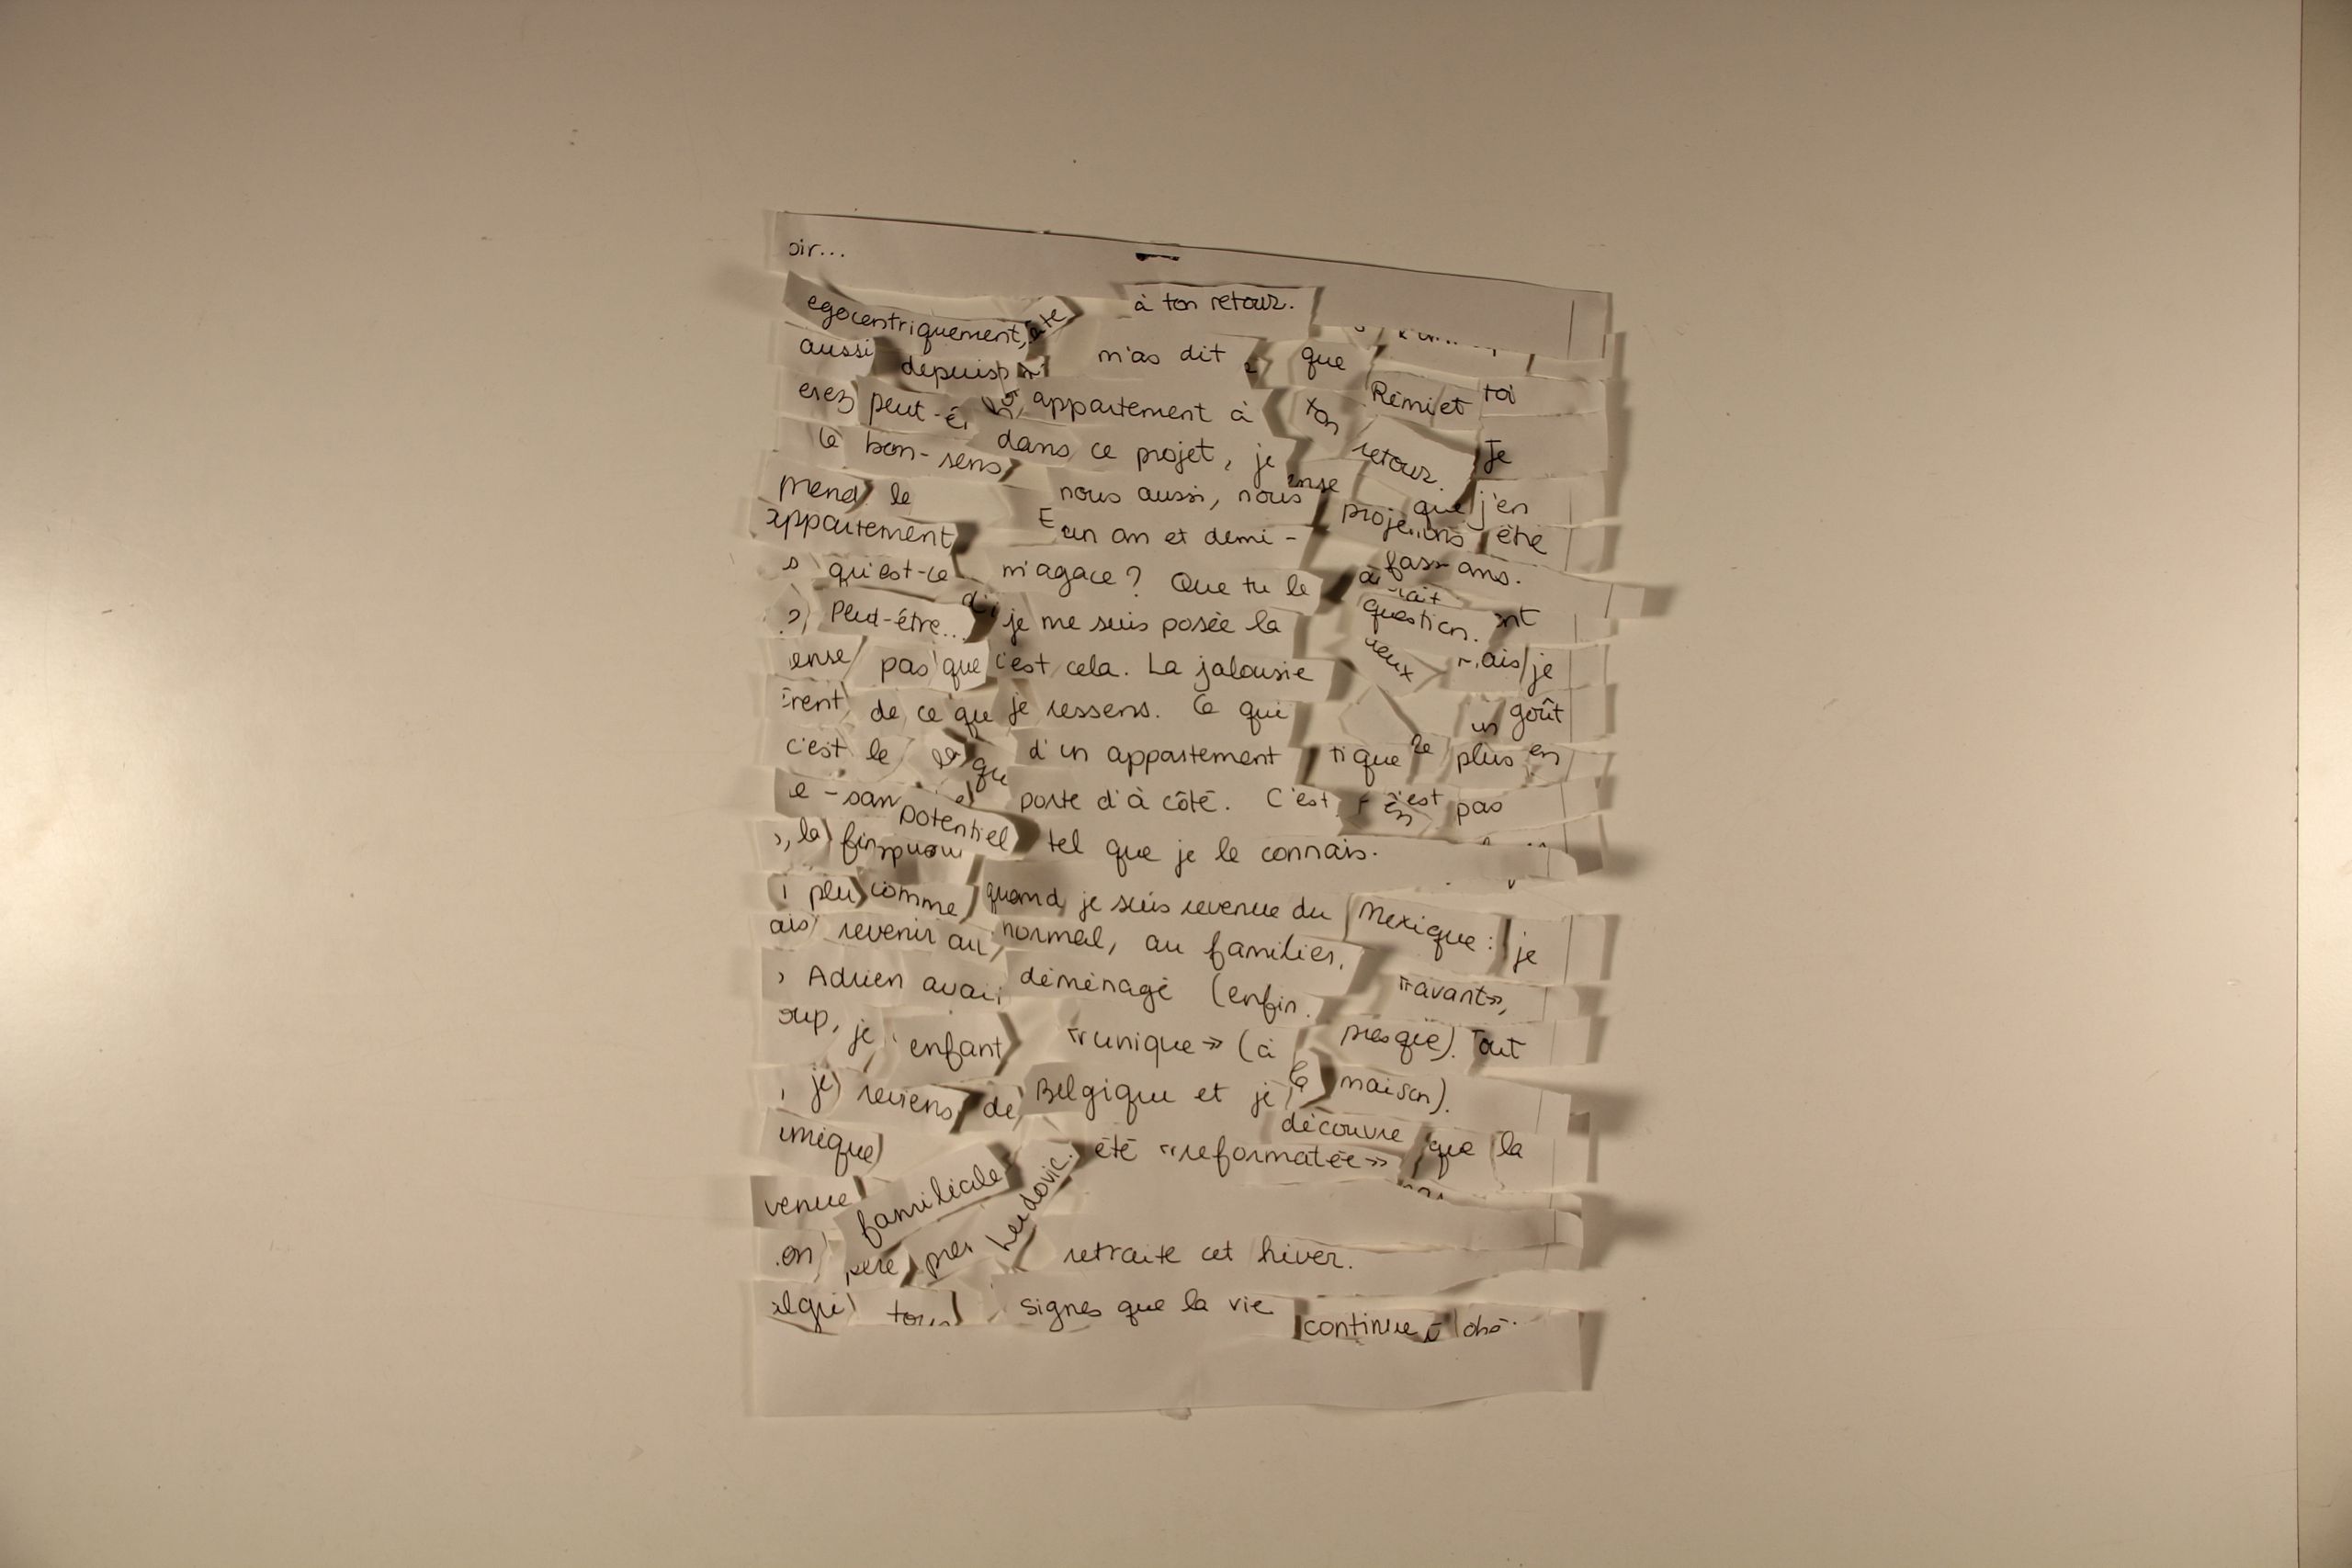 oir...
à ton retour.
egocentriquement, ate
aussi depuis m'as dit que
erez peut-ê appartement à ton Rémi et toi
le bon-sens dans ce projet, je retour. Je
prend le nous aussi, nous ense que j'en
appartement un an et demi - projetions être
s qu'est-ce m'agace? Que tu le à fass ans.
Peut-être... je me suis posée la question. ont
ense pas que c'est cela. La jalousie ieux ais je
rent de ce que je ressens. Ce qui un goût
c'est le la qu d'un appartement tique le plus en
e-san porte d'à côté. C'est c'est pas
, la fin potentiel tel que je le connais.
plu comme quand je suis revenue du Mexique: je
ais revenir au normal, au familier,
, Adrien avai déménagé (enfin «avant»,
oup, je enfant «unique» (à presque). Tout
, je reviens de Belgique et je la maison).
imique découvre que la
été «reformatée»
venue familiale Ludovic.
on père pres retraite cet hiver.
elqu tous signes que la vie continue